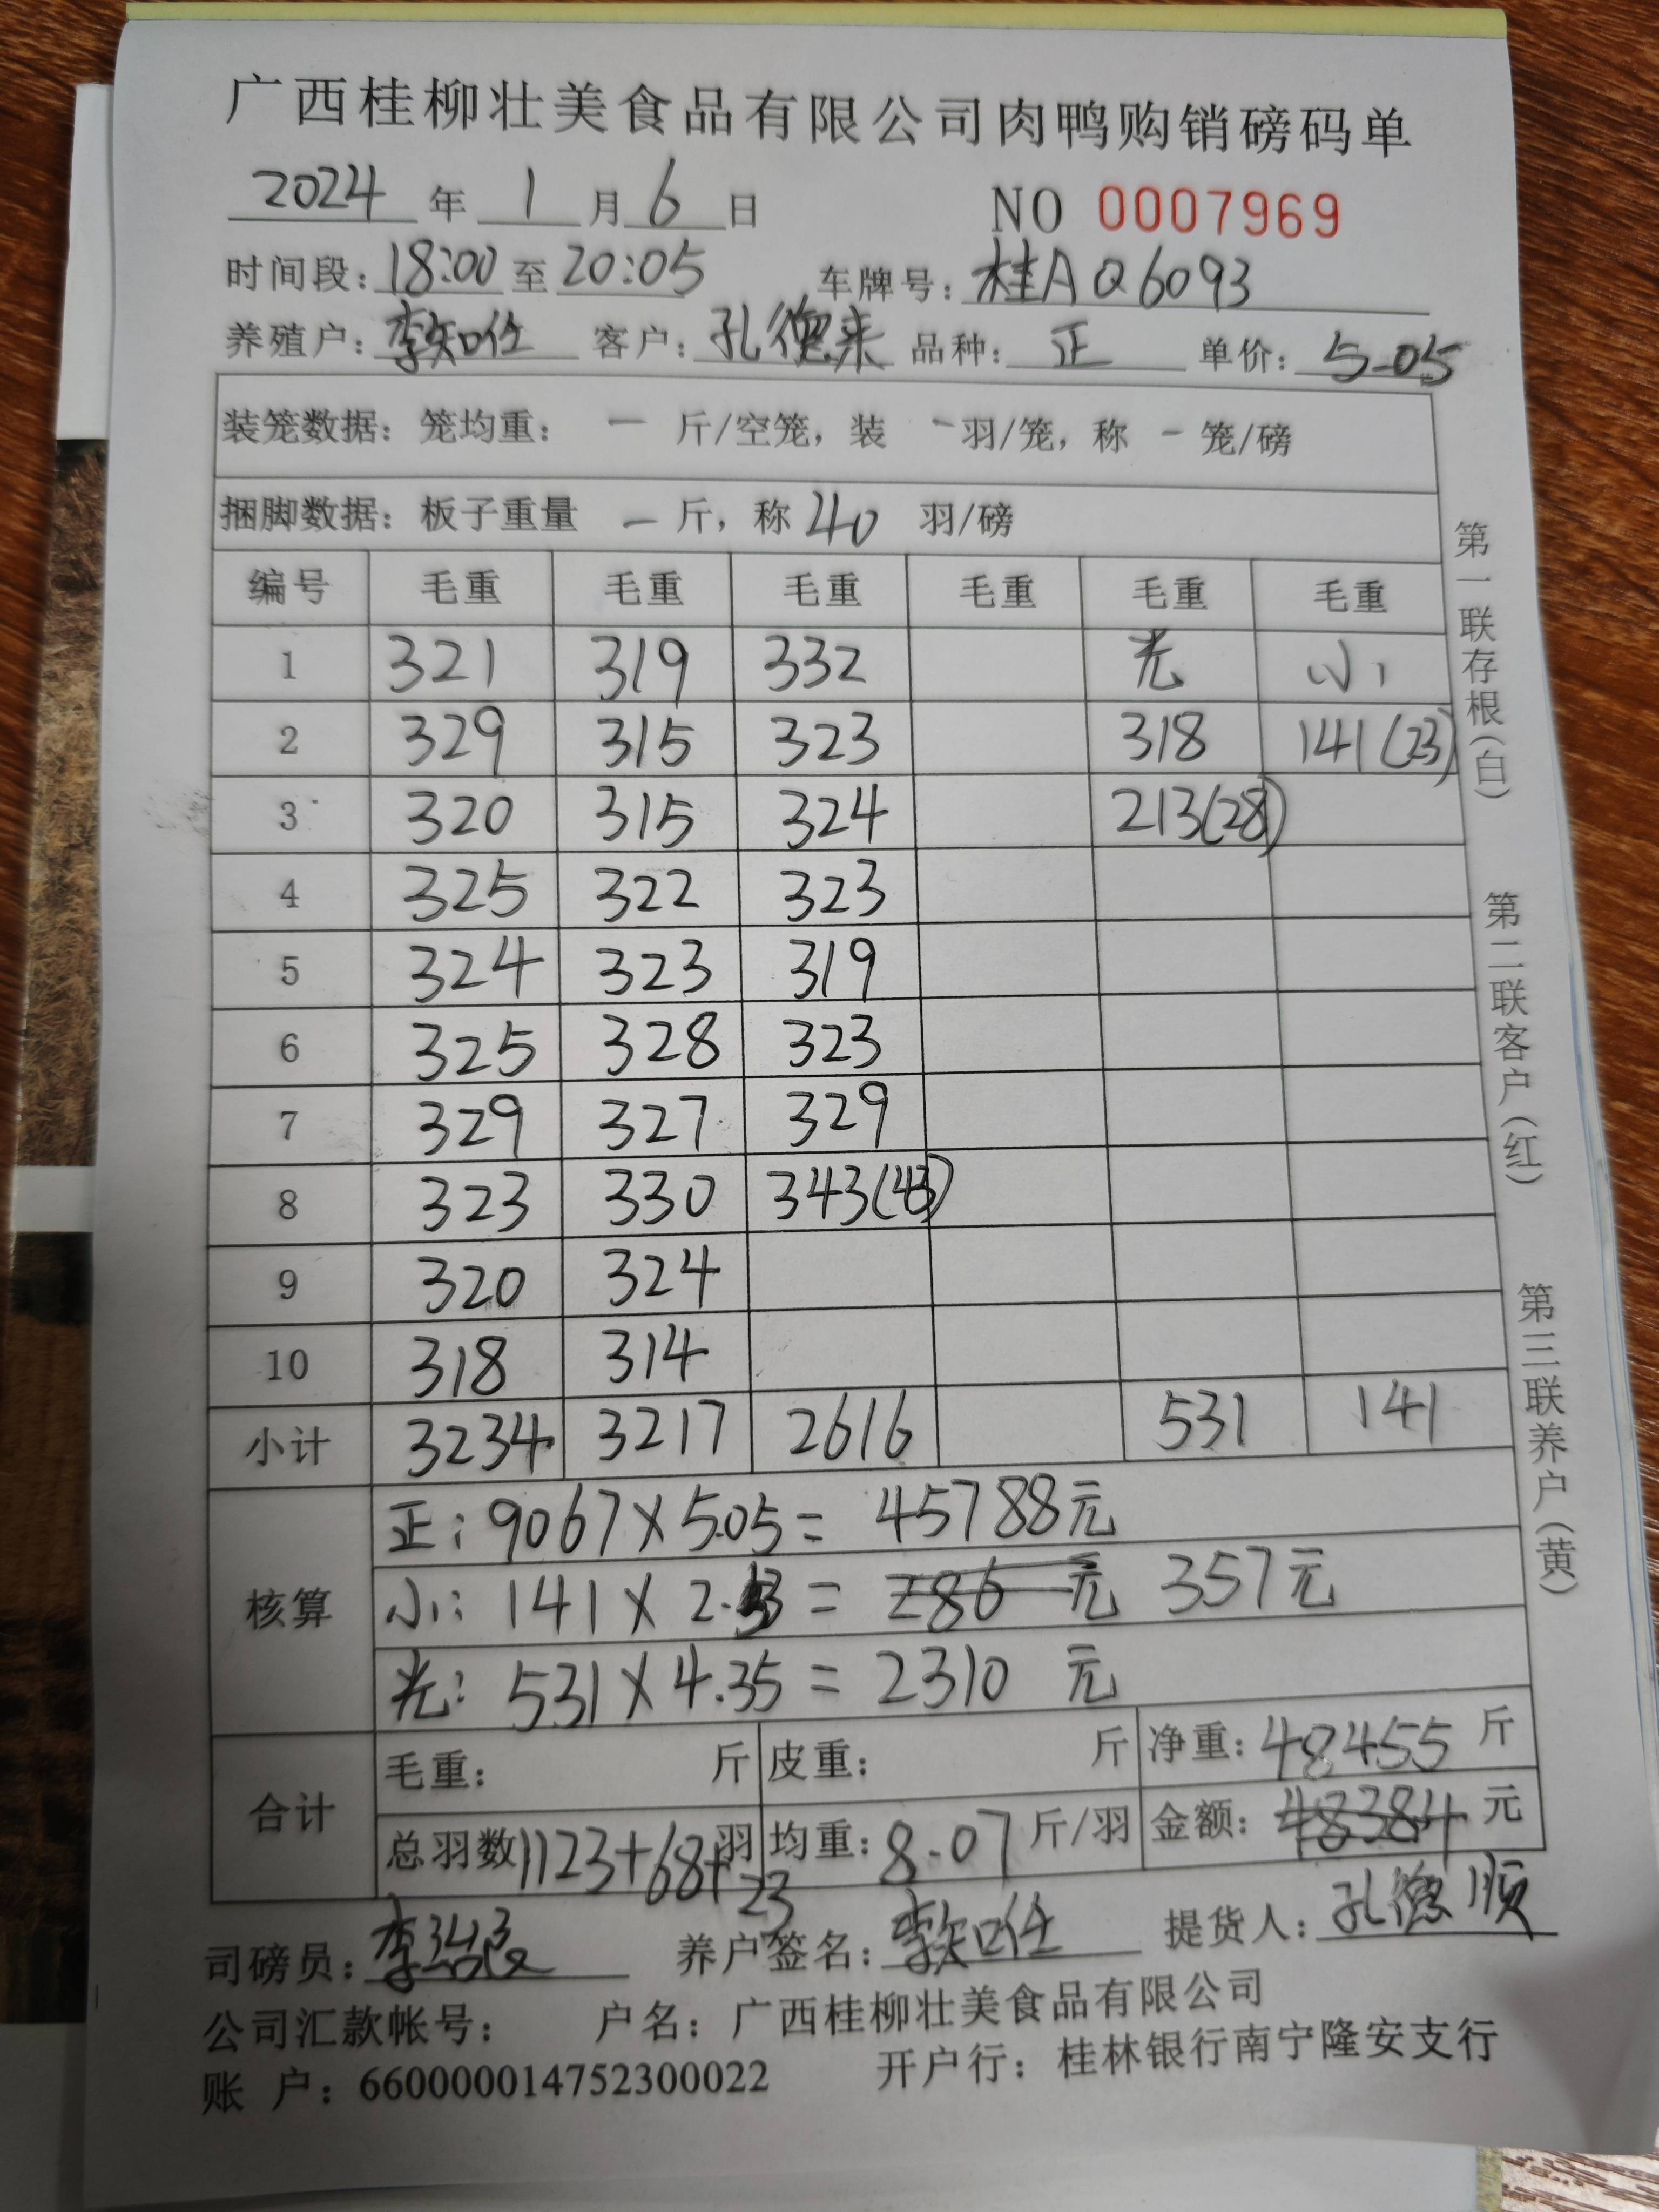 广西桂柳壮美食品有限公司肉鸭购销磅码单
2024 年 1 月 6 日 NO 0007969
时间段：18:00 至 20:05 车牌号：桂AQ6093
养殖户： 客户：孔德来 品种：正 单价：5.05
装笼数据：笼均重： — 斤/空笼，装 - 羽/笼，称 - 笼/磅
捆脚数据：板子重量 — 斤，称 40 羽/磅
编号 毛重 毛重 毛重 毛重 毛重 毛重
1 321 319 332 光 小
2 329 315 323 318 141(23)
3 320 315 324 213(28)
4 325 322 323
5 324 323 319
6 325 328 323
7 329 327 329
8 323 330 343(43)
9 320 324
10 318 314
小计 3234 3217 2616 531 141
核算
正：9067×5.05= 45788元
小：141× = 286 元 357元
光：531×4.35=2310 元
合计
毛重： 斤 皮重： 斤 净重：48455 斤
总羽数1123+68+23羽 均重：8.07斤/羽 金额：48384 元
司磅员： 养户签名： 提货人：孔德顺
公司汇款帐号： 户名：广西桂柳壮美食品有限公司
账 户：660000014752300022 开户行：桂林银行南宁隆安支行
第一联存根（白）
第二联客户（红）
第三联养户（黄）